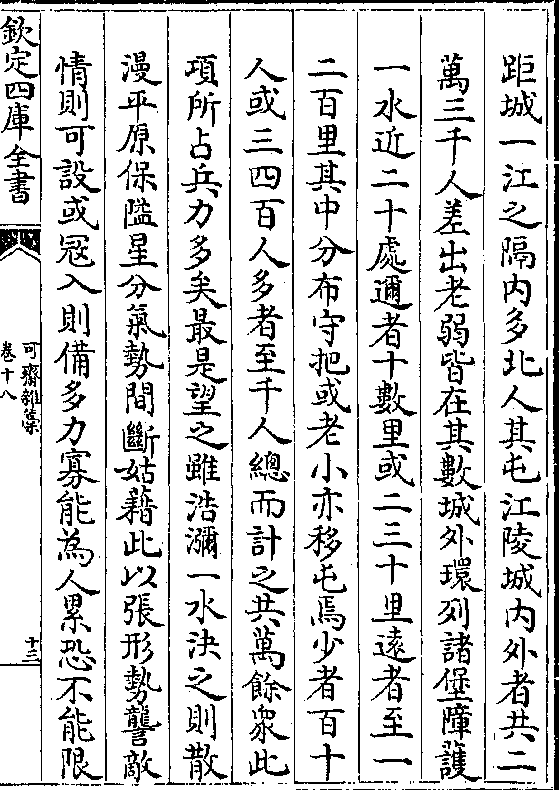 距城一江之隔内多北人其屯江陵城内外者共二
萬三千人差出老弱皆在其數城外環列諸堡障䕶
一水近二十處邇者十數里或二三十里遠者至一
二百里其中分布守把或老小亦移屯焉少者百十
人或三四百人多者至千人總而計之共萬餘衆此
項所占兵力多矣最是望之雖浩瀰一水決之則散
漫平原保隘星分氣勢間斷姑藉此以張形勢讋敵
情則可設或冦入則備多力寡能為人累恐不能限
欽定四庫全書
可齋雜藁
卷十八
十三